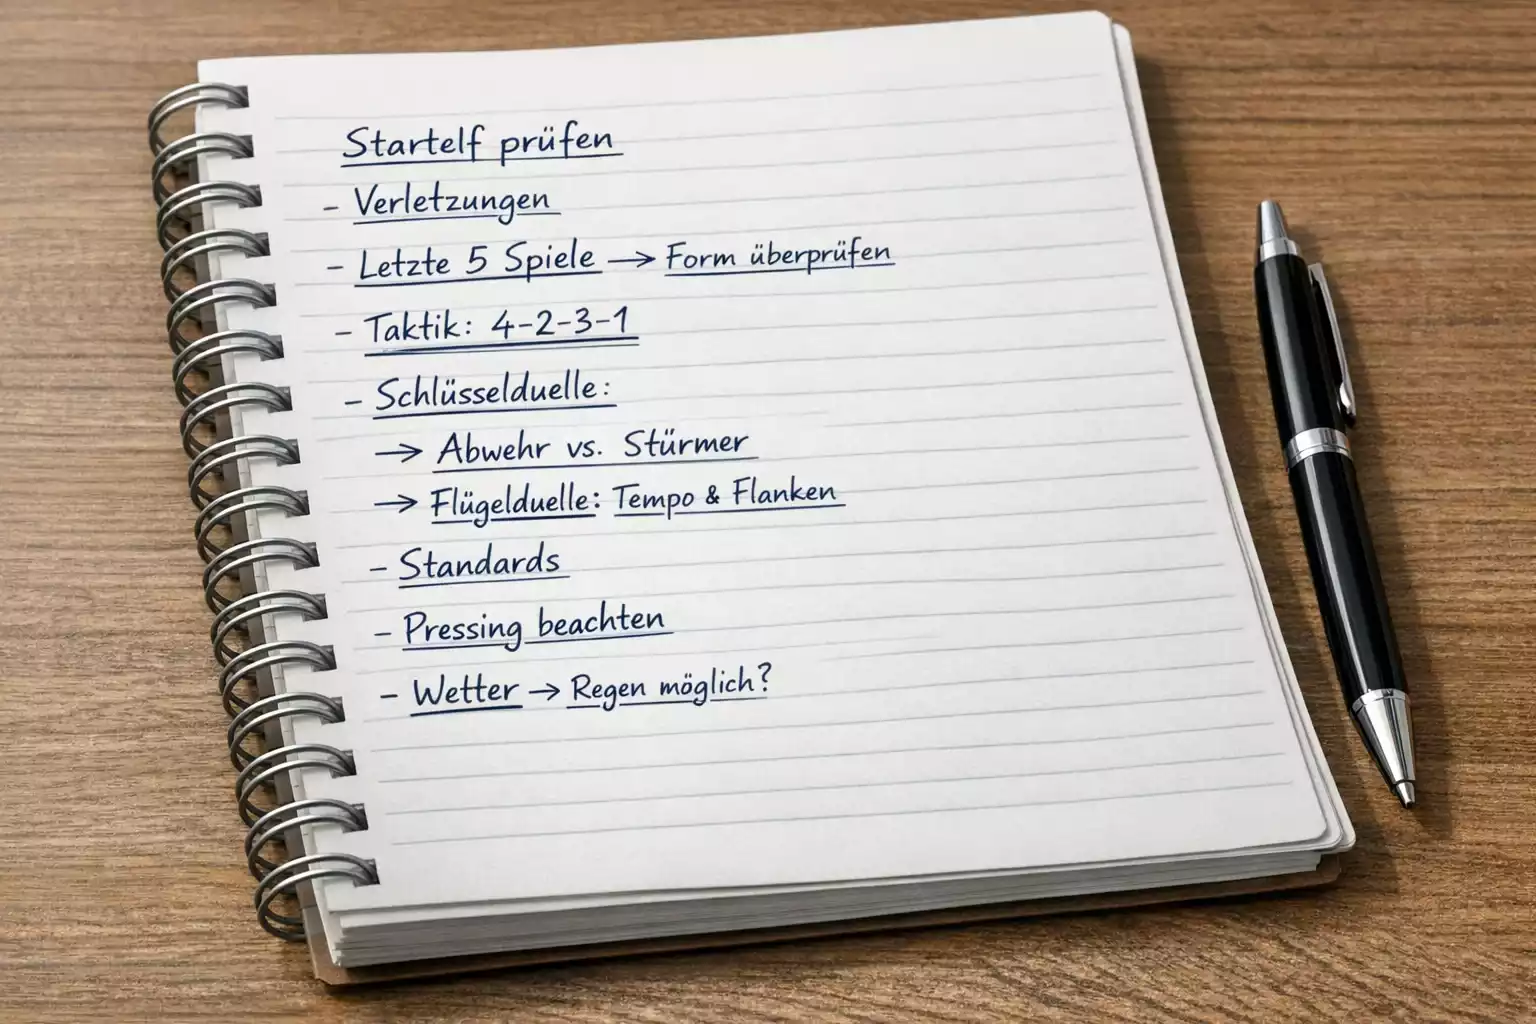 Startelf prüfen
- Verletzungen
- Letzte 5 Spiele → Form überprüfen
- Taktik: 4-2-3-1
- Schlüsselduelle:
→ Abwehr vs. Stürmer
→ Flügelduelle: Tempo & Flanken
- Standards
- Pressing beachten
- Wetter → Regen möglich?